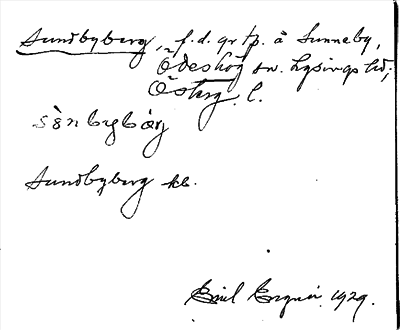 Sundbyberg, f.d. grtp. å Sunneby,
Ödeshög sn. Lysings hd;
Östergl.
sòn bybærj
Sundbyberg kb.
Emil 1929.